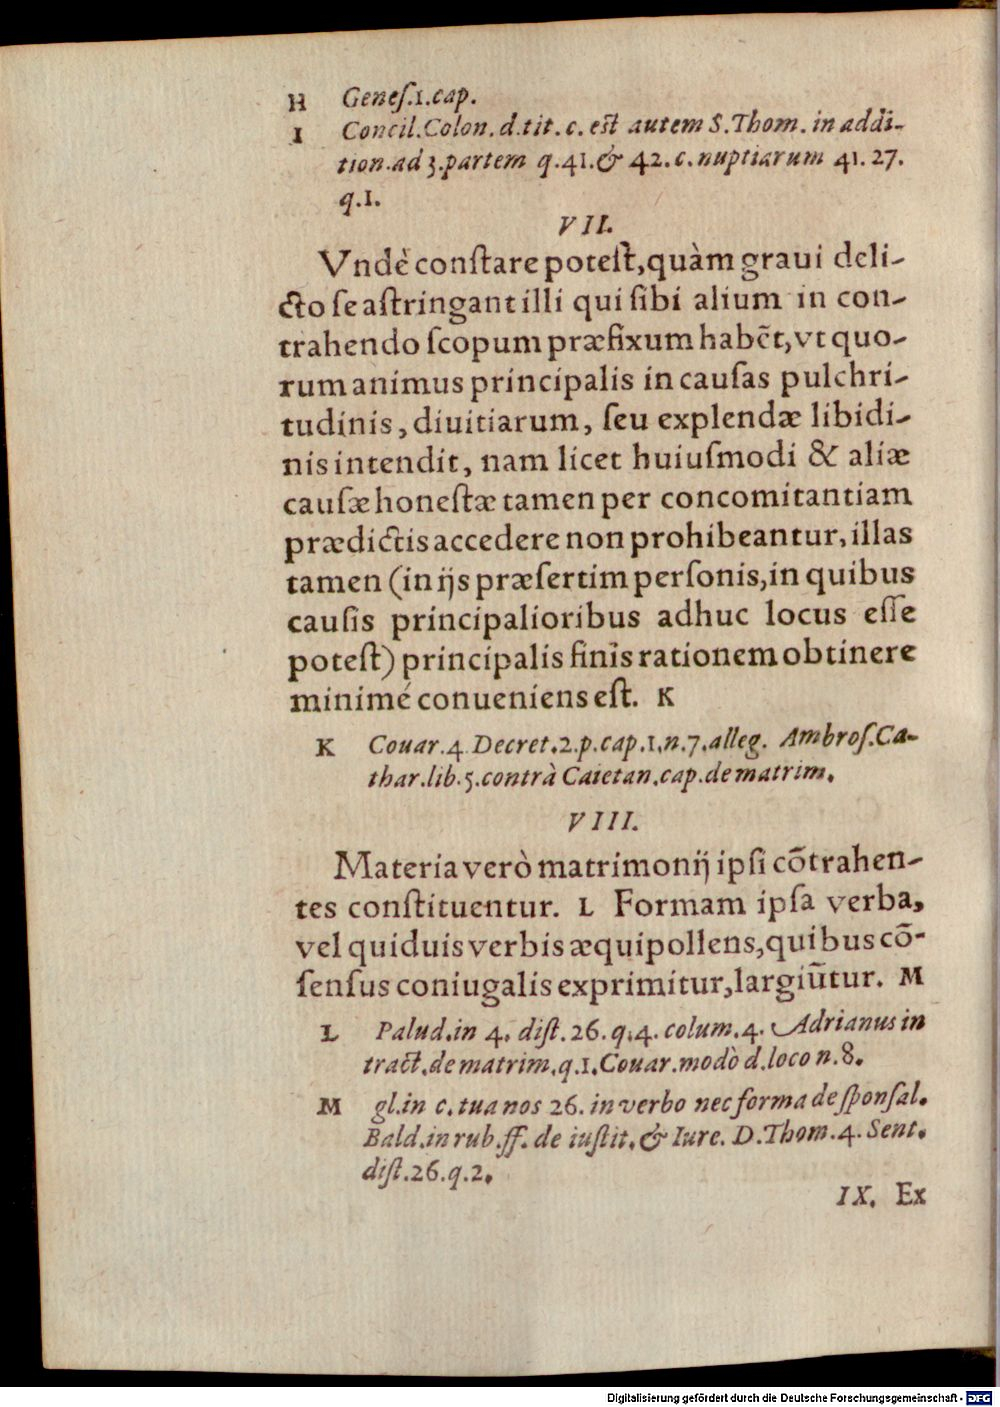 H Geneſ.1.cap.
I Concil.Colon. d.tit. c. est autem S.Thom. in addi-
tion.ad 3.partem q.41.& 42.c.nuptiarum 41. 27.
q.1.
VII.
Vndè conſtare poteſt,quàm graui deli-
cto ſe aſtringant illi qui ſibi alium in con-
trahendo ſcopum præfixum habēt,vt quo-
rum animus principalis in cauſas pulchri-
tudinis, diuitiarum, ſeu explendæ libidi-
nis intendit, nam licet huiuſmodi & aliæ
cauſæ honeſtæ tamen per concomitantiam
prædictis accedere non prohibeantur, illas
tamen (in ijs præſertim perſonis,in quibus
cauſis principalioribus adhuc locus eſſe
poteſt) principalis finis rationem obtinere
minimé conueniens eſt. K
K Couar.4 Decret.2.p.cap.1.n.7.alleg. Ambroſ.Ca-
thar.lib.5.contrà Caietan.cap.de matrim.
VIII.
Materia verò matrimonij ipſi cōtrahen-
tes conſtituentur. L Formam ipſa verba,
vel quiduis verbis æquipollens,quibus cō-
ſenſus coniugalis exprimitur,largiūtur. M
L Palud.in 4. diſt. 26. q.4. colum.4. Adrianus in
tract.de matrim.q.1.Couar.modò d.loco n.8.
M gl.in c. tua nos 26. in verbo nec forma de ſponſal.
Bald.in rub.ff. de iuſtit.& Iure. D.Thom.4. Sent.
diſt.26.q.2.
IX. Ex
Digitalisierung gefördert durch die Deutsche Forschungsgemeinschaft - DFG